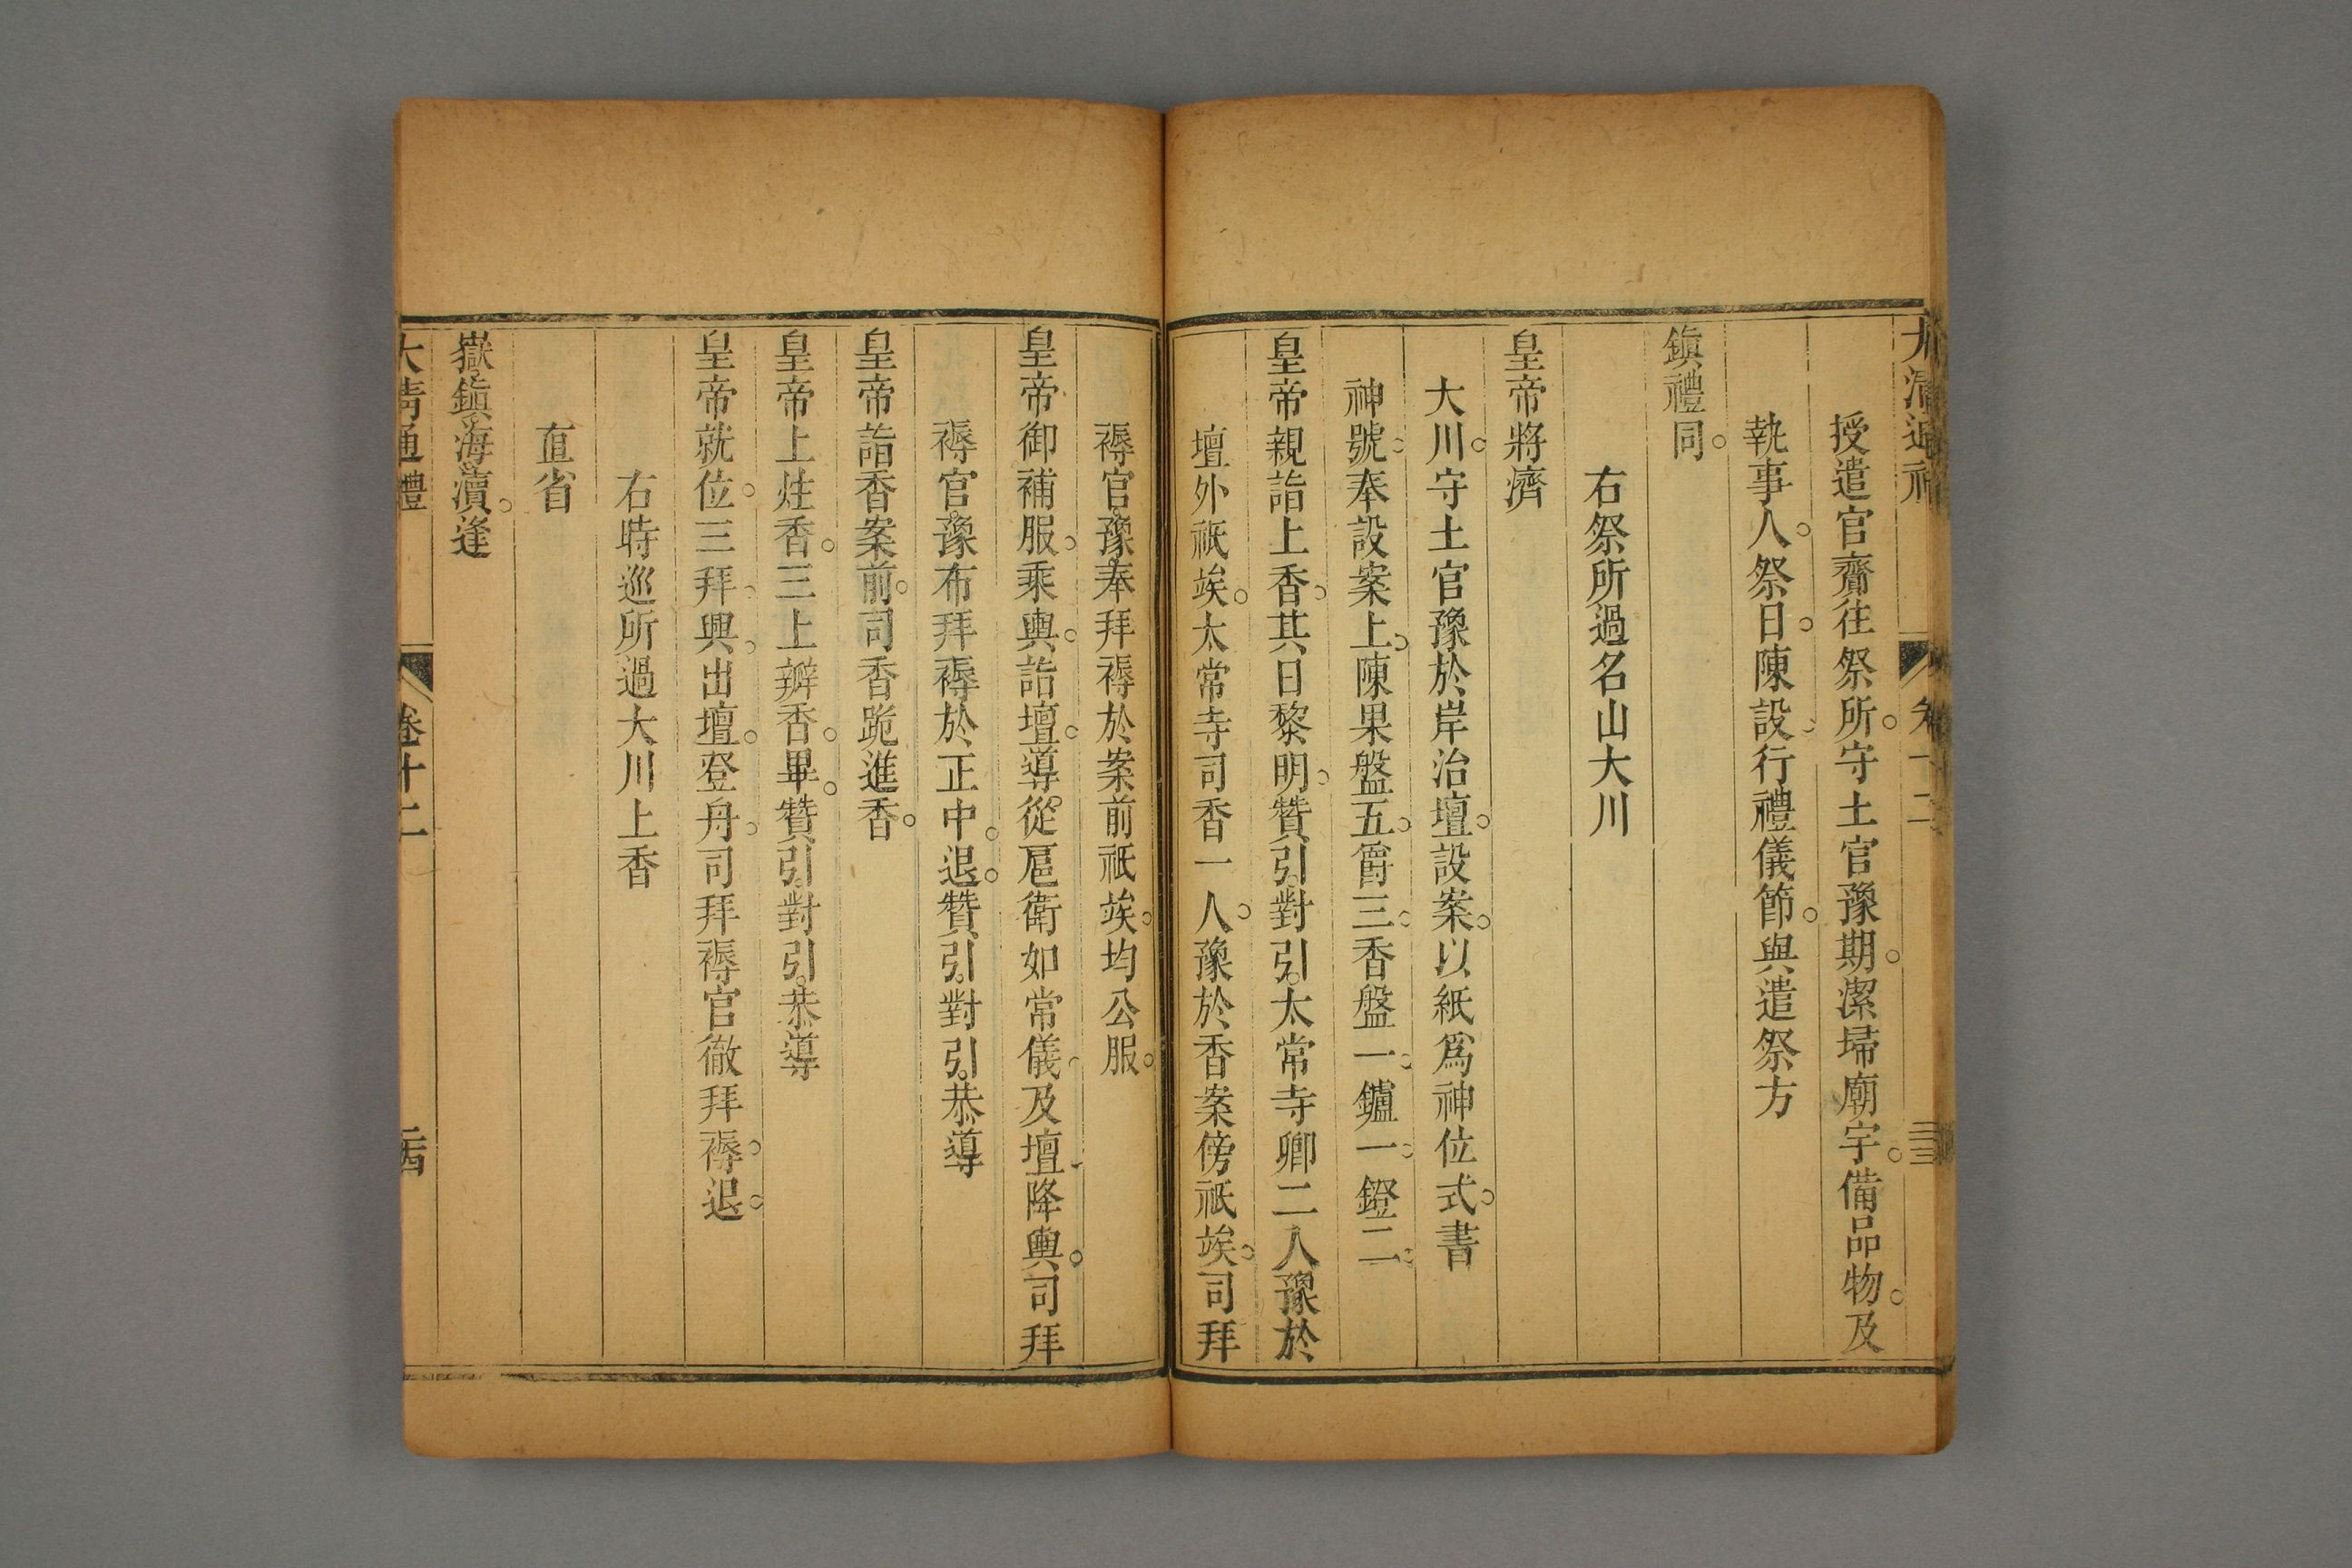 大清通禮 卷十二
授遣官齎往祭所。守土官豫期。潔埽廟宇。備品物。及
執事人。祭日。陳設、行禮儀節。與遣祭方
鎮禮同。
右祭所過名山大川
皇帝將濟
大川。守土官豫於岸治壇。設案。以紙爲神位式。書
神號。奉設案上。陳果盤五。爵三。香盤一。鑪一。鐙二。
皇帝親詣上香。其日黎明。贊引對引。太常寺卿二人豫於
壇外祇竢。太常寺司香一人。豫於香案傍祇竢。司拜
褥官。豫奉拜褥於案前祇竢。均公服。
皇帝御補服。乘輿。詣壇。導從扈衛如常儀。及壇、降輿。司拜
褥官。豫布拜褥於正中。退。贊引。對引。恭導
皇帝詣香案前。司香跪進香。
皇帝上炷香。三上瓣香。畢。贊引。對引。恭導
皇帝就位。三拜。興。出壇。登舟。司拜褥官徹拜褥。退。
右時巡所過大川上香
直省
嶽。鎮。海。瀆。逢
大清通禮 卷十二 二十四